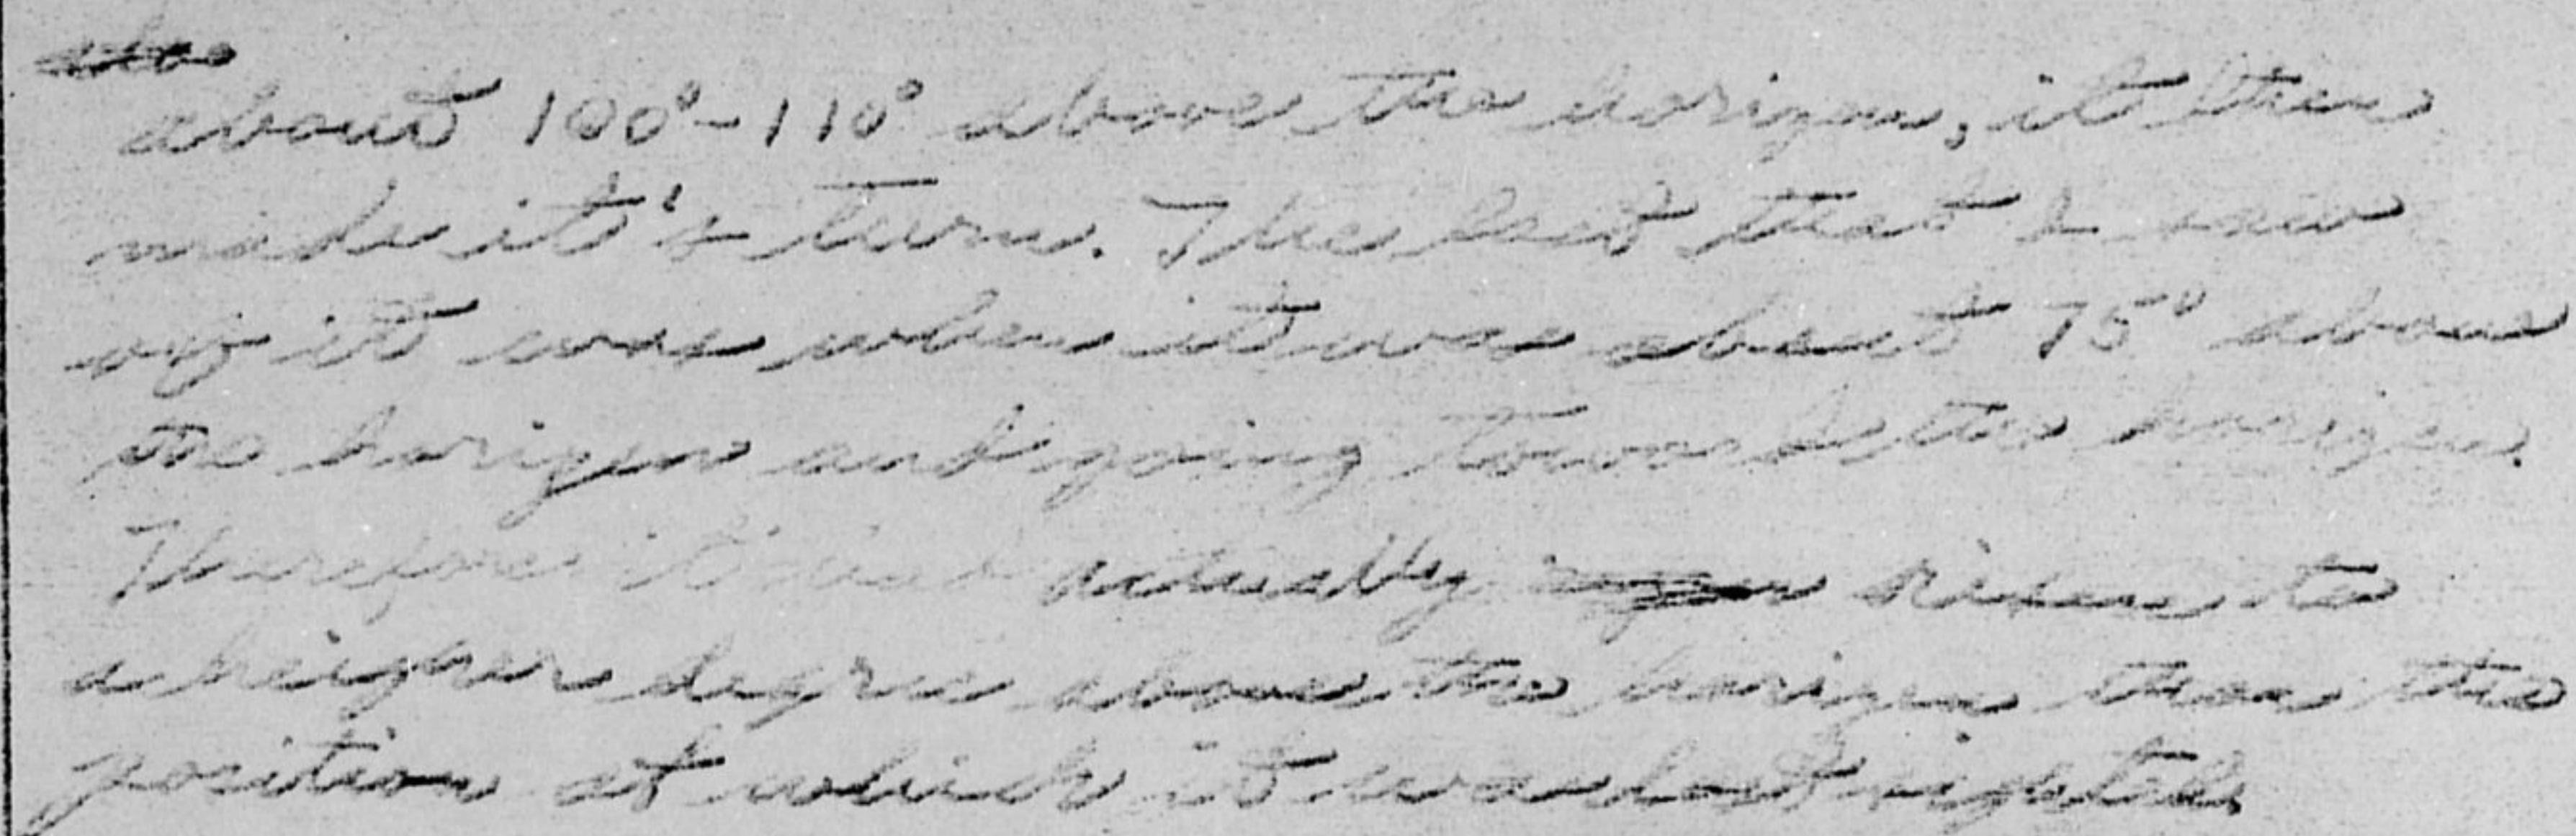 about 100°-110° above the horizon, it then
made it's turn. The last that I saw
of it was when it was about 75° above
the horizon and going towards the horizon.
Therefore it had actually risen to
a heigher degree above the horizon than the
position at which it was last sighted.